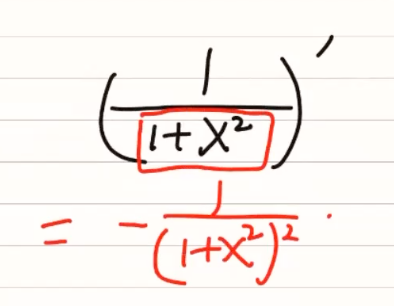 (1/(1+x²))′
= -1/(1+x²)² ·